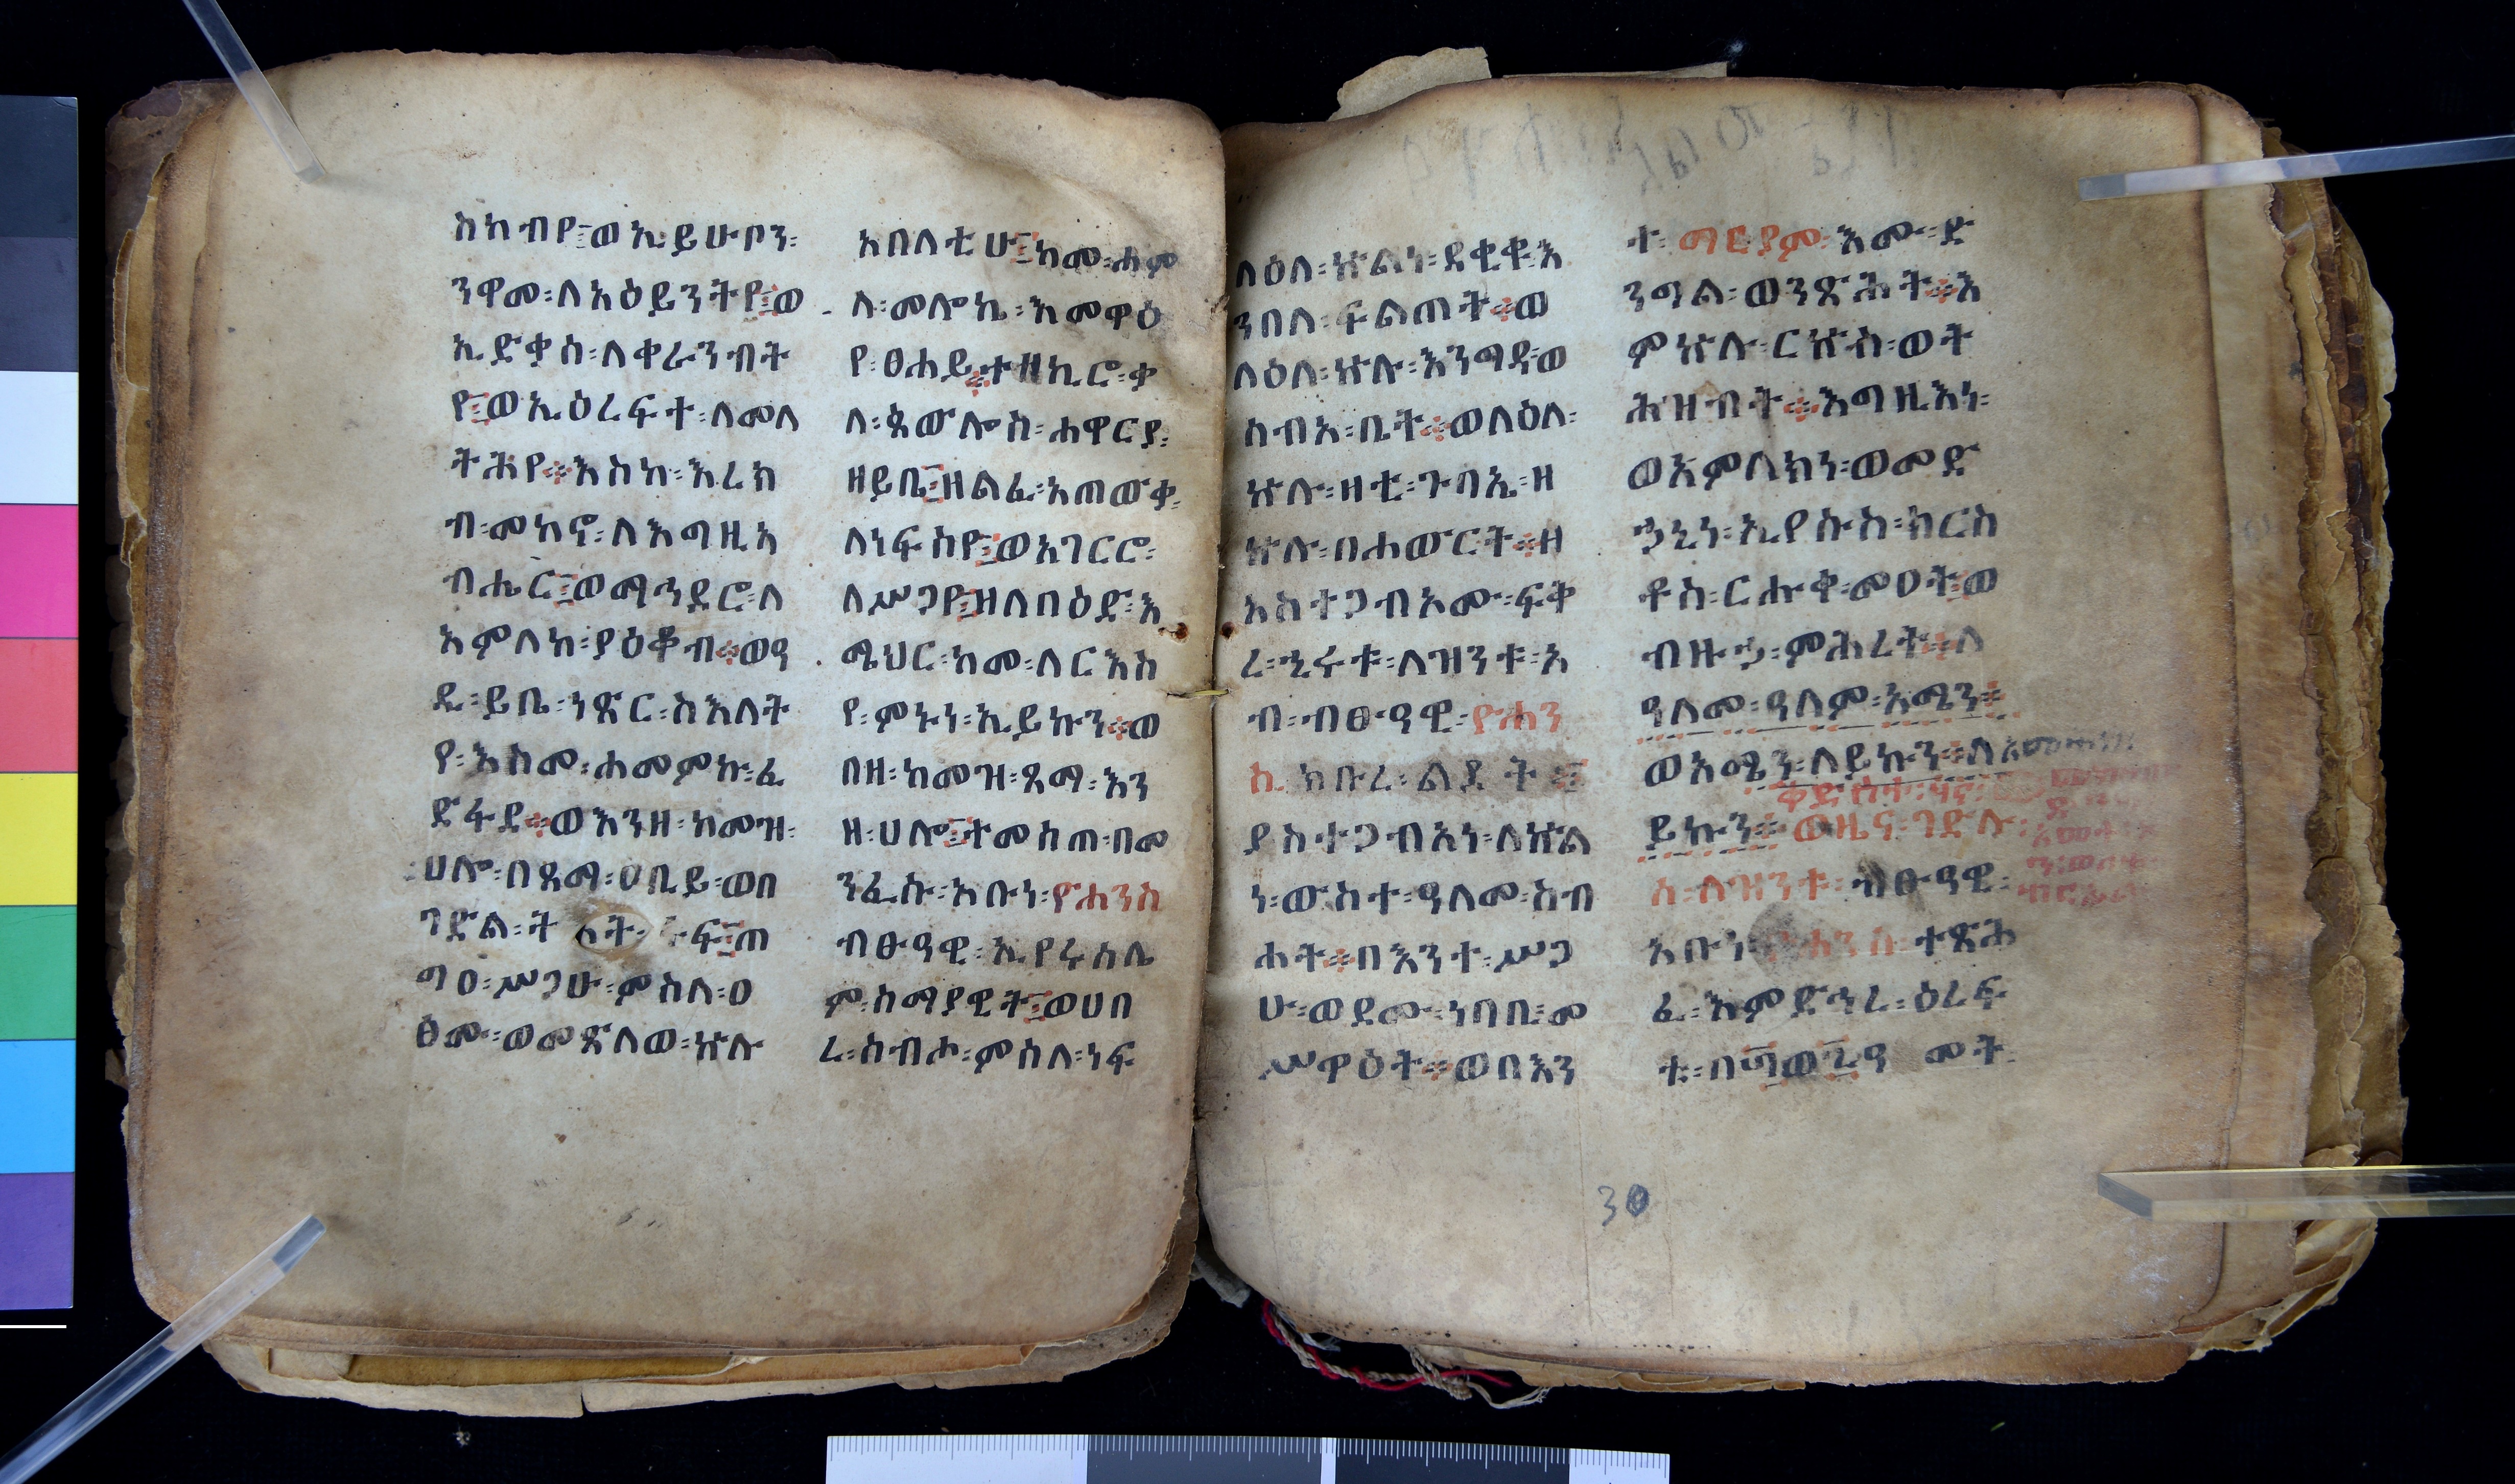 ስከብየ፤ወኢይሁቦን፡
ንዋመ፡ለአዕይንትየ፤ወ
ኢድቃስ፡ለቀራንብት
የ፤ወኢዕረፍተ፡ለመላ
ትሕየ፨እስከ፡እረክ
ብ፡መከኖ፡ለእግዚአ
ብሔር፤ወማኅደሮ፡ለ
አምላከ፡ያዕቆብ፨ወዓ
ዲ፡ይቤ፡ነጽር፡ስእለት
የ፡እስመ፡ሐመምኩ፡ፈ
ድፋደ፨ወእንዘ፡ከመዝ፡
ሀሎ፡በጻማ፡ዐቢይ፡ወበ
ገድል፡
ግዐ፡ሥጋሁ፡ምስለ፡ዐ
ፅሙ፡ወመጽለወ፡ኵሉ
አበሊቲሁ፤ከመ፡ሐም
ለ፡መሎኬ፡እመዋዕ
የ፡ፀሐይ፨ተዘኪሮ፡ቃ
ለ፡ጳውሎስ፡ሐዋርያ፡
ዘይቤ፤ዘልፈ፡አጠውቃ፡
ለነፍስየ፤ወአገርሮ፡
ለሥጋየ፤ዘለበዕድ፡እ
ሜህር፡ከመ፡ለርእስ
የ፡ምኑነ፡ኢይኩን፨ወ
በዘ፡ከመዝ፡ጻማ፡እን
ዘ፡ሀሎ፤ተመሰጠ፡በመ
ንፈሱ፡አቡነ፡ዮሐንስ
ብፁዓዊ፡ኢየሩሳሌ
ም፡ሰማያዊት፤ወሀበ
ረ፡ስብሖ፡ምስለ፡ነፍ
ላዕለ፡ኵልነ፡ደቂቁ፡እ
ንበለ፡ፍልጠት፨ወ
ላዕለ፡ኵሉ፡እንግዳ፡ወ
ሰብአ፡ቤት፨ወላዕለ፡
ኵሉ፡ዛቲ፡ጉባኤ፡ዘ
ኵሉ፡በሐውርት፨ዘ
አስተጋብኦሙ፡ፍቅ
ረ፡ኂሩቱ፡ለዝንቱ፡አ
ብ፡ብፁዓዊ፡ዮሐን
ስ፡ክቡረ፡ልደት፤
ያስተጋብአነ፡ለኵል
ነ፡ውስተ፡ዓለመ፡ስብ
ሐት፨በእንተ፡ሥጋ
ሁ፡ወደሙ፡ነባቢ፡መ
ሥዋዕት፨ወበእን
ተ፡ማርያም፡እሙ፡ድ
ንግል፡ወንጽሕት፨እ
ምኵሉ፡ርኵስ፡ወት
ሕዝብት፨እግዚእነ፡
ወአምላክነ፡ወመድ
ኃኒነ፡ኢየሱስ፡ክርስ
ቶስ፡ርሑቀ፡መዐት፡ወ
ብዙኃ፡ምሕረት፨ለ
ዓለመ፡ዓለም፡አሜን፨
ወአሜን፡ለይኩን፨ለ
ይኩን፨ወዜና፡ገድሉ፡
ስ፡ለዝንቱ፡ብፁዓዊ፡
አቡነ፡ዮሐንስ፡ተጽሕ
ፈ፡እምድኅረ፡ዕረፍ
30